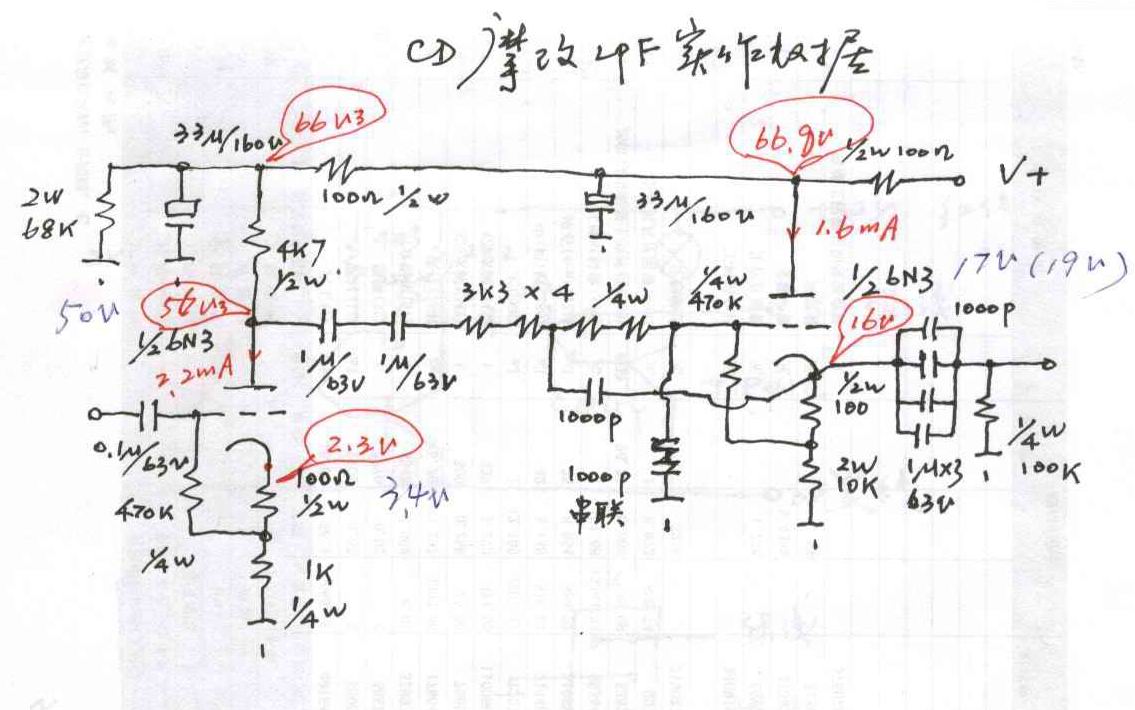 CD 摩改 4PF 实作数据
33μ/160v
66v3
66.9v
1/2w 100Ω
V+
2w
68K
100Ω 1/2w
33μ/160v
1.6mA
4K7
1/2w
50v
56v3
3K3 × 4 1/4w
1/4w
470K
1/2 6N3
17v (19v)
1/2 6N3
2.2mA
1μ/63v
1μ/63v
16v
1000p
1000p
1/2w
100
0.1μ/63v
2.3v
100Ω
1/2w
3.4v
470K
1/4w
1000p
串联
2w
10K
1μ×3
63v
1/4w
100K
1K
1/4w